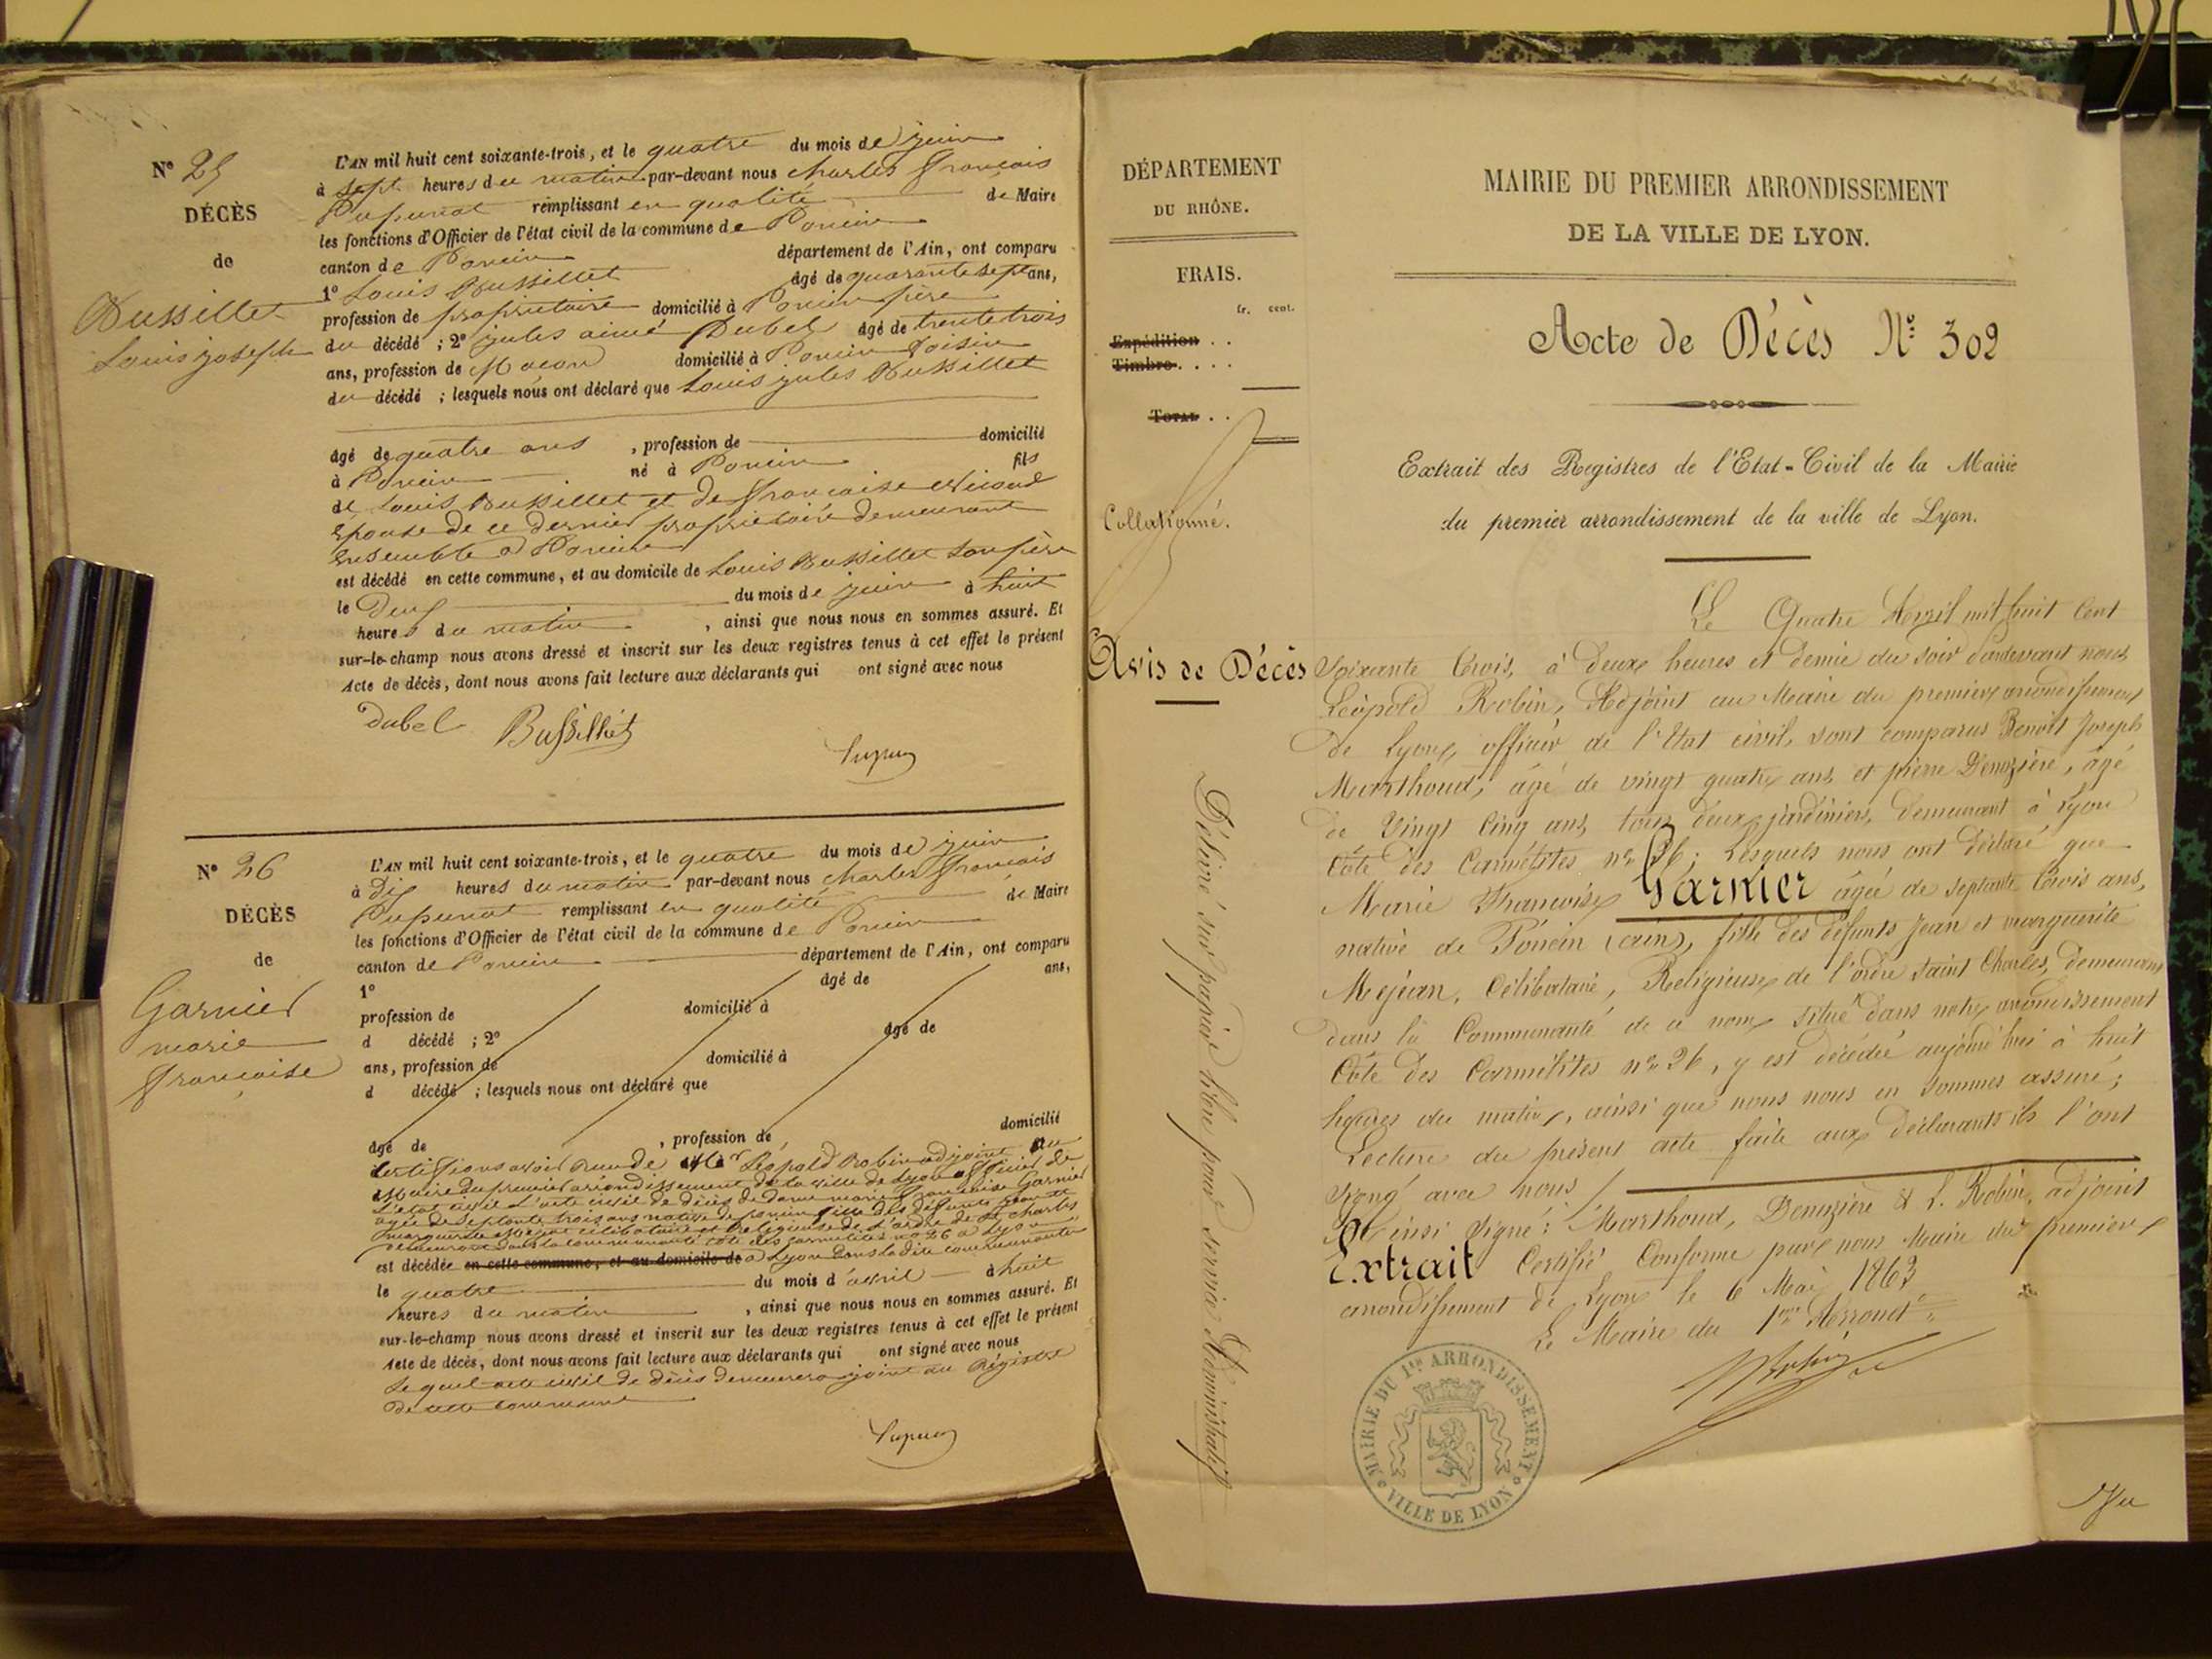 N° 25
DÉCÈS
de
Bussillet
Louis joseph
L'AN mil huit cent soixante-trois, et le quatre du mois de juin
à sept heures du matin par-devant nous Charles François
remplissant en qualité de Maire
les fonctions d'Officier de l'état civil de la commune de Poncin
canton de Poncin département de l'Ain, ont comparu
1° Louis Bussillet âgé de quarante sept ans,
profession de propriétaire domicilié à Poncin père
du décédé ; 2° jules aimé Dubel âgé de trente trois
ans, profession de Maçon domicilié à Poncin Voisin
du décédé ; lesquels nous ont déclaré que Louis jules Bussillet
âgé de quatre ans , profession de domicilié
à Poncin né à Poncin fils
de Louis Bussillet et de Françoise
Epouse de ce dernier propriétaire demeurant
Ensemble à Poncin
est décédé en cette commune, et au domicile de Louis Bussillet son père
le Deux du mois de juin à huit
heures du matin , ainsi que nous nous en sommes assuré. Et
sur-le-champ nous avons dressé et inscrit sur les deux registres tenus à cet effet le présent
Acte de décès, dont nous avons fait lecture aux déclarants qui ont signé avec nous
Dubel Bussillet
N° 26
DÉCÈS
de
Garnier
marie
françoise
L'AN mil huit cent soixante-trois, et le quatre du mois de juin
à Dix heures du matin par-devant nous Charles François
remplissant en qualité de Maire
les fonctions d'Officier de l'état civil de la commune de Poncin
canton de Poncin département de l'Ain, ont comparu
1° âgé de ans,
profession de domicilié à
d décédé ; 2° âgé de
ans, profession de domicilié à
d décédé ; lesquels nous ont déclaré que
âgé de , profession de domicilié
Certifions avoir reçu de Mr Léopold Robin adjoint au
Maire du premier arrondissement de la ville de Lyon officier de
L'état civil L'acte civil de décès de Dame marie françoise Garnier
agée de septante trois ans native de poncin fille des défunts jean et
marguerite Mejean célibataire et Religieuse de L'ordre de St Charles
demeurant dans la communauté côte des carmelites no 26 a Lyon
est décédée en cette commune, et au domicile de a Lyon dans la dite communauté
le quatre du mois d'avril à huit
heures du matin , ainsi que nous nous en sommes assuré. Et
sur-le-champ nous avons dressé et inscrit sur les deux registres tenus à cet effet le présent
Acte de décès, dont nous avons fait lecture aux déclarants qui ont signé avec nous
Lequel acte civil de décès demeurera joint au Régistre
de cette commune
DÉPARTEMENT
DU RHÔNE.
FRAIS.
fr. cent.
Expédition . .
Timbre. . . .
TOTAL . .
Collationné.
Avis de Décès
Délivré sur papier libre pour service Administratif
MAIRIE DU PREMIER ARRONDISSEMENT
DE LA VILLE DE LYON.
Acte de Décès N° 302
Extrait des Registres de l'Etat-Civil de la Mairie
du premier arrondissement de la ville de Lyon.
Le Quatre Avril mil huit Cent
Soixante Trois, à deux heures et demie du soir pardevant nous
Léopold Robin, Adjoint au Maire du premier arrondissement
de Lyon, officier de l'Etat civil, sont comparus Benoit Joseph
Marthoud, âgé de vingt quatre ans et pierre Denuzière, âgé
de Vingt Cinq ans, tous deux jardiniers, demeurant à Lyon
Côte des Carmélites n° 26; Lesquels nous ont déclaré que
Marie Françoise Garnier âgée de septante trois ans,
native de Poncin (ain), fille des défunts Jean et marguerite
Mejean, Célibataire, Religieuse de l'ordre saint Charles, demeurant
dans la Communauté de ce nom située dans notre arrondissement
Côte des Carmélites n° 26, y est décédée aujourd'hui à huit
heures du matin, ainsi que nous nous en sommes assuré;
Lecture du présent acte faite aux déclarants ils l'ont
signé avec nous
Ainsi signé: Marthoud, Denuzière & L. Robin, adjoint
Extrait Certifié Conforme par nous Maire du premier
arrondissement de Lyon le 6 Mai 1863
Le Maire du 1er Arrondt
MAIRIE DU 1ER ARRONDISSEMENT
VILLE DE LYON
Vu